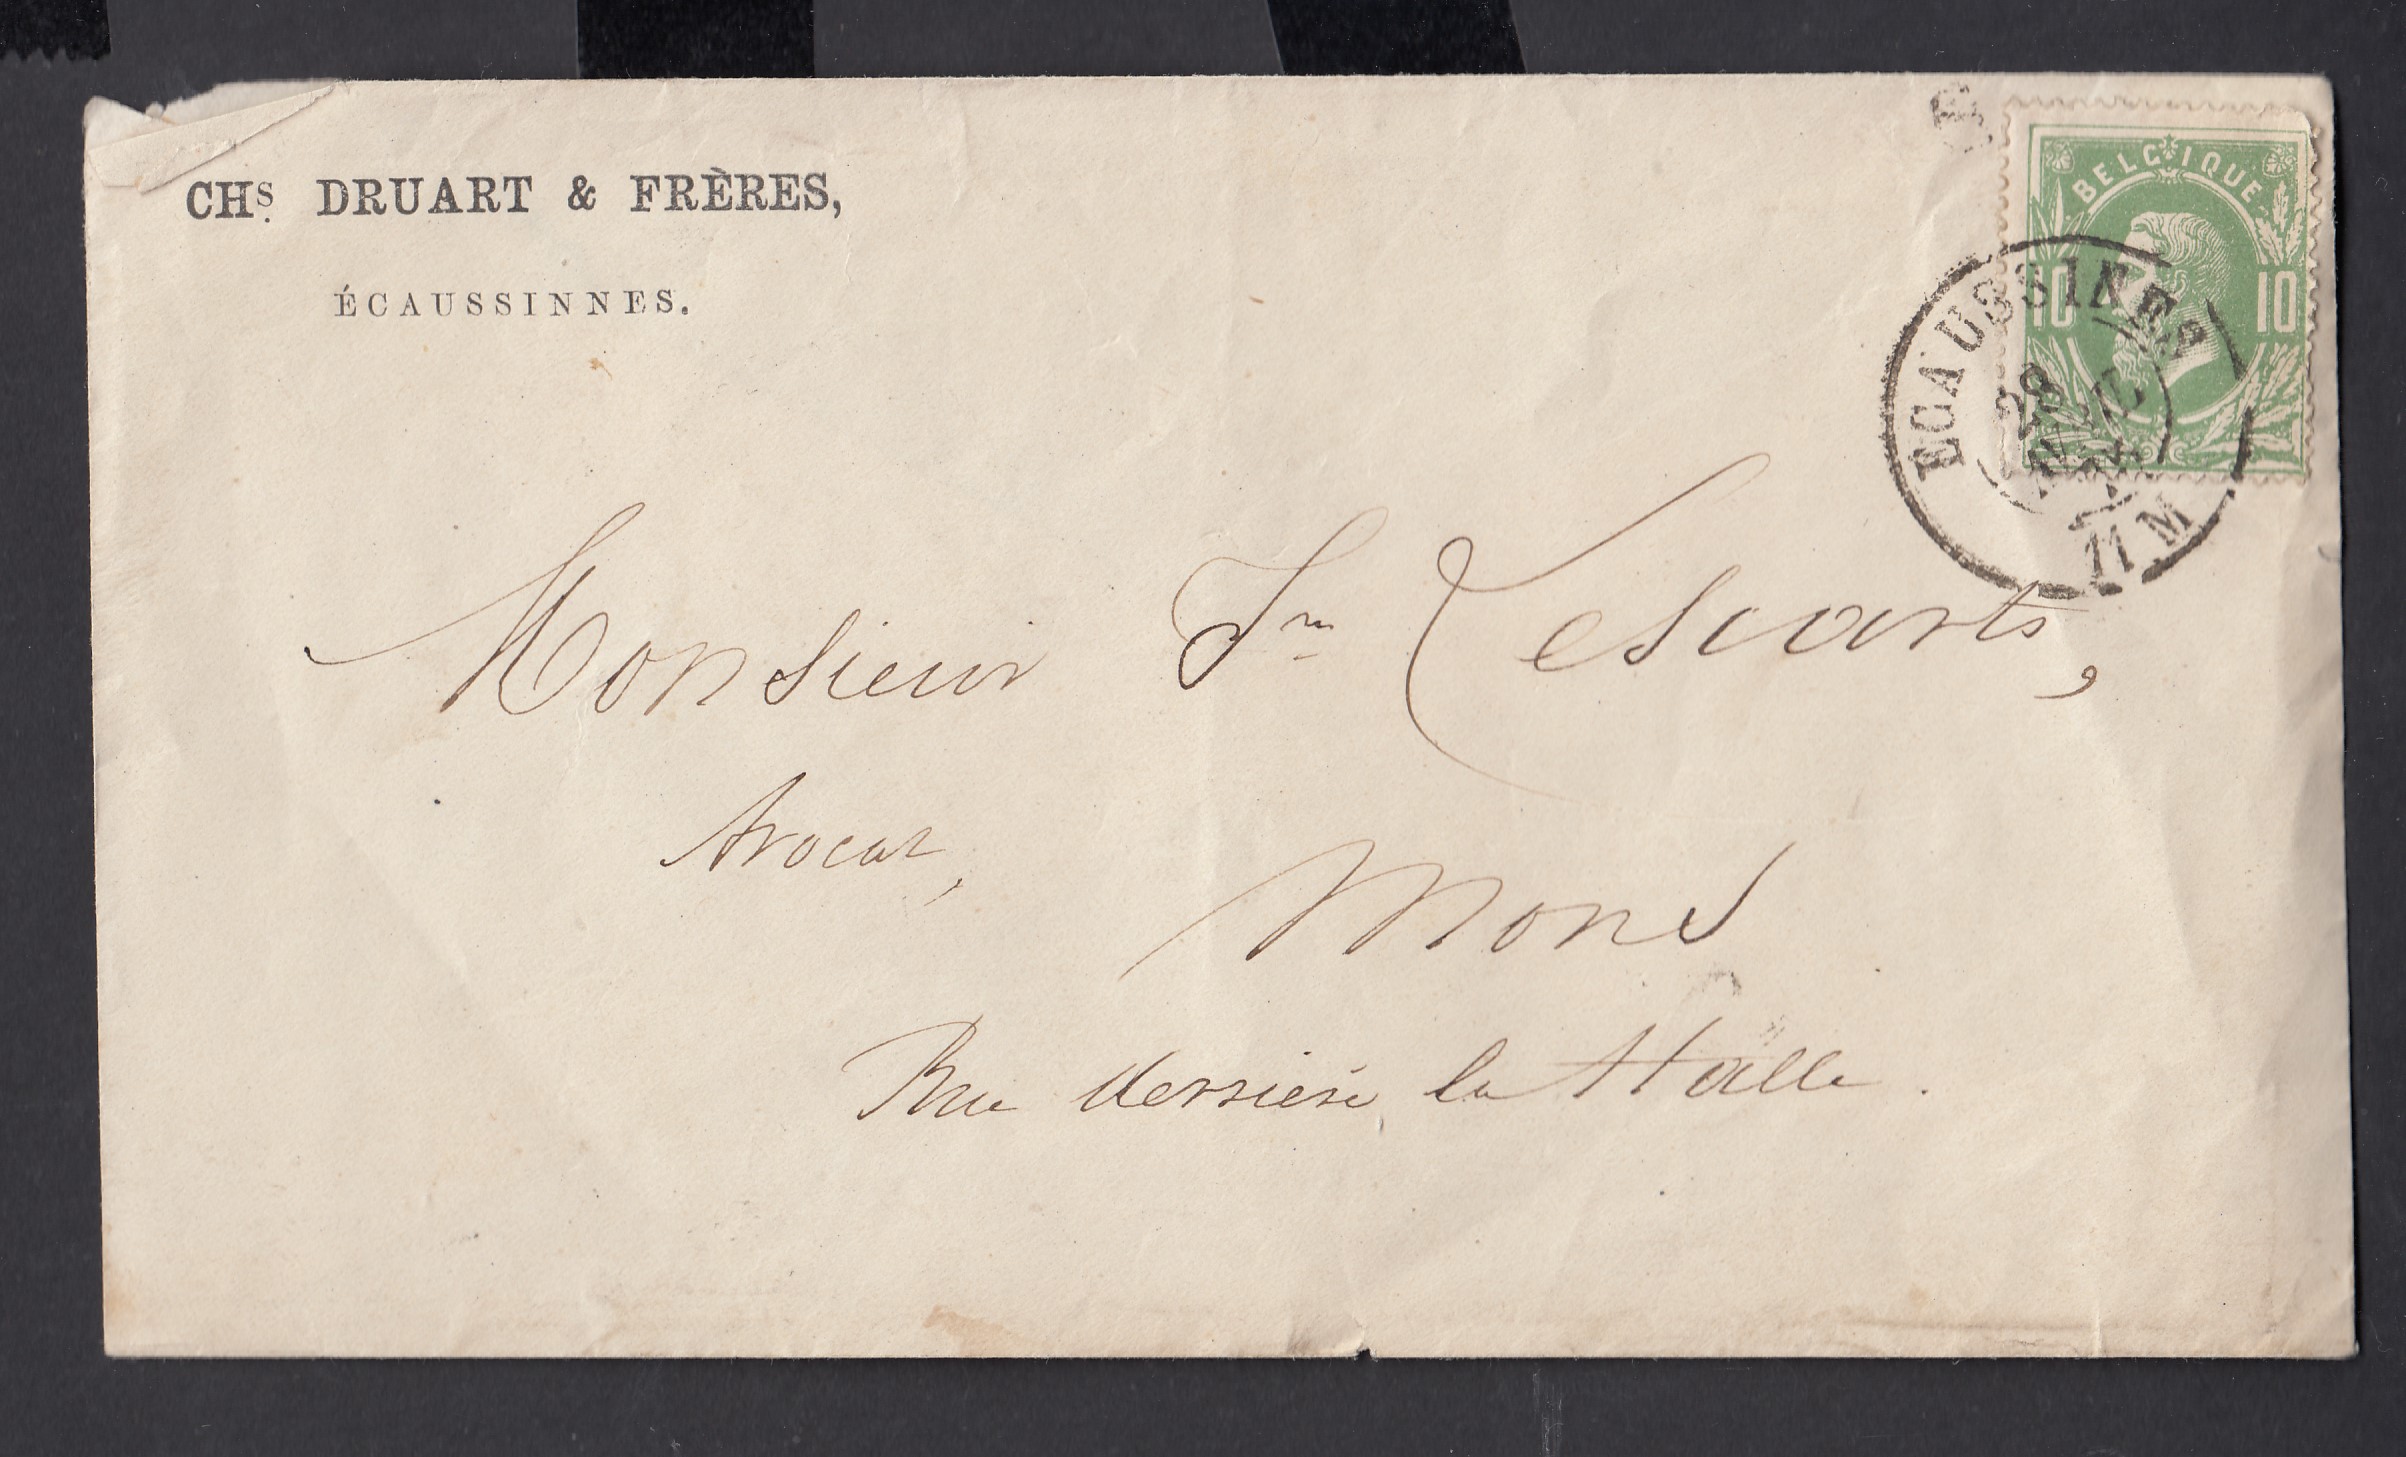 CHs. DRUART & FRÈRES,
ÉCAUSSINNES.
BELGIQUE
10 10
ECAUSSINES
28
11 M
Monsieur Lescarts,
Avocat,
Mons
Rue derrière la Halle.